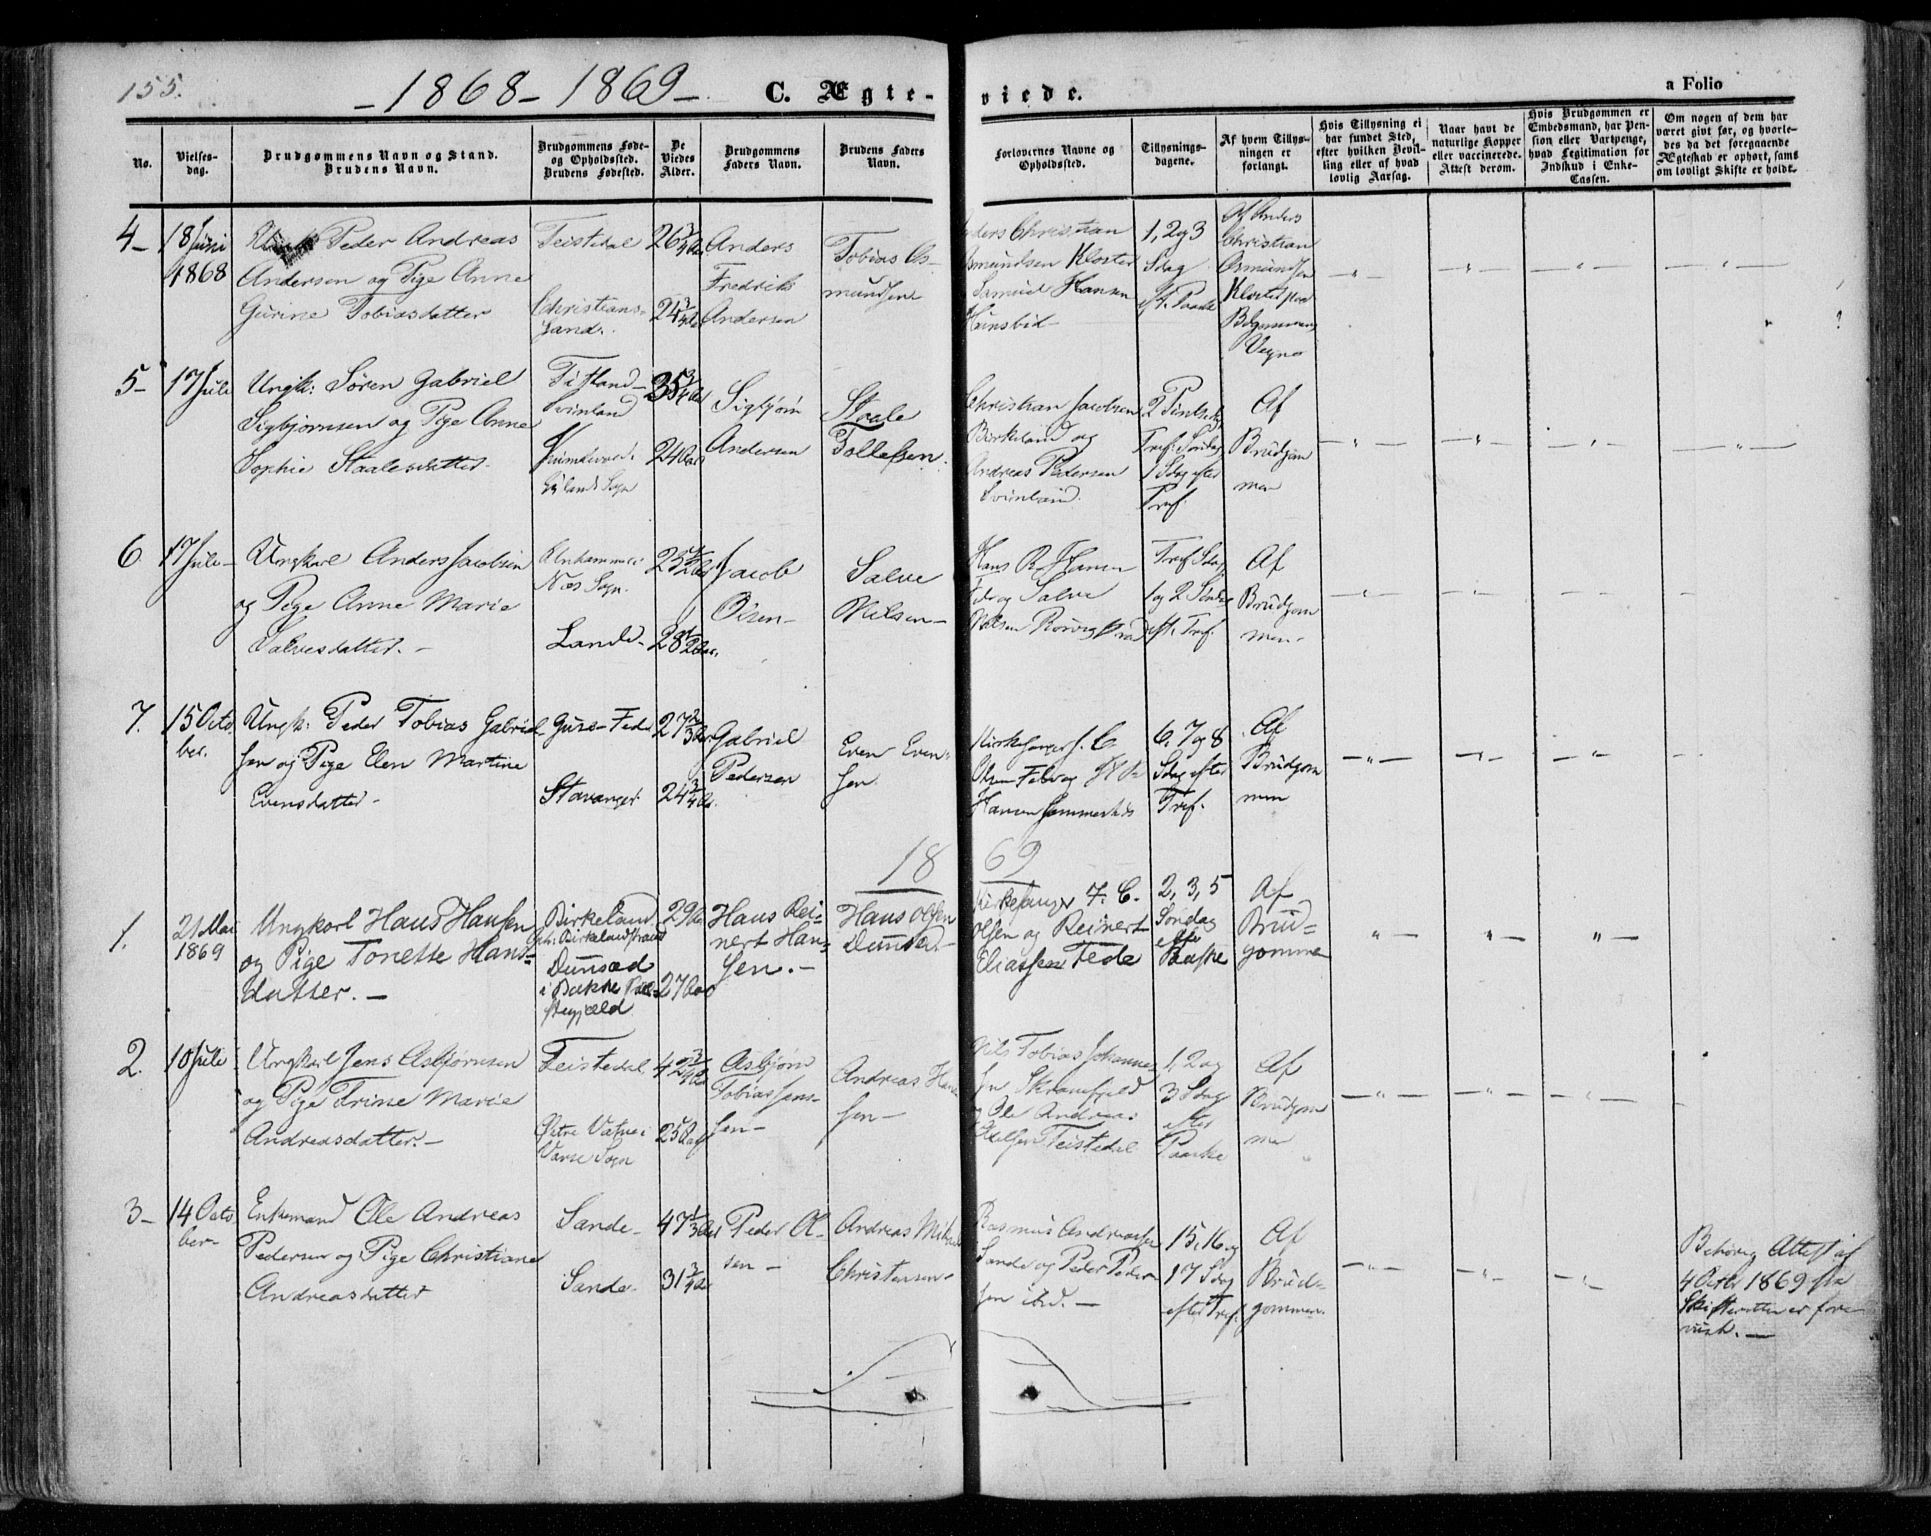 155.
-1868-1869-
C. Ægte-
viede.
a Folio
No.
Vielses-
dag.
Brudgommens Navn og Stand.
Brudens Navn.
Brudgommens Føde-
og Opholdssted.
Brudens Fødested.
De
Viedes
Alder.
Brudgommens
Faders Navn.
Brudens Faders
Navn.
Forlovernes Navne og
Opholdssted.
Tillysnings-
dagene.
Af hvem Tillys-
ningen er
forlangt.
Hvis Tillysning ei
har fundet Sted,
efter hvilken Bevil-
ling eller af hvad
lovlig Aarsag.
Naar havt de
naturlige Kopper
eller vaccinerede.
Attest derom.
Hvis Brudgommen er
Embedsmand, har Pen-
sion eller Vartpenge,
hvad Legitimation for
Indskud i Enke-
Cassen.
Om nogen af dem har
været givt før, og hvorle-
des da det foregaaende
Ægteskab er ophørt, sams
om lovligt Skifte er holdt.
4-
18 Juni
1868
Peder Andreas
Andersen og Pige Anne
Gurine Tobiasdatter
Feistedal
Christians-
sand.
26 3/4 Aar
24 3/4 Aar
Anders
Fredriks
Andersen
Tobias Os-
mundsen
Anders Christian
Osmundsen Kloster
Samuel Hansen
1, 2 og 3
Sdag
eft. Paaske
Af Anders
Christian
Osmundsen
Kloster paa
Brudgommens
Vegne
5-
17 Juli
Ungk: Søren Gabriel
Sigbjørnsen og Pige Anne
Sophie Staalesdatter
Svinland
Gylands Sogn
35 3/4 Aar
24 Aar
Sigbjørn
Andersen
Staale
Tollefsen.
Christian Jacobsen
Birkeland og
Andreas Pedersen
Svinland.
2 Pintsed.
Tref. Søndag
1 Sdag efter
Tref.
Af
Brudgom
men
6.
17 Juli-
Ungkarl Anders Jacobsen
og Pige Anne Marie
Salvesdatter.-
Næs Sogn.
Lande-
25 1/2 Aar
28 1/2 Aar.
Jacob
Olsen-
Salve
Nilsen-
Hans R. F. Hansen
Fede og Salve
Nilsen
Tref. Sdag,
1 og 2 Søndag
eft. Tref.
Af
Brudgom
men-
7.
15 Octo
ber.
Ungk: Peder Tobias Gabriel
sen og Pige Elen Martine
Evensdatter-
Guse- Fede
Stavanger
27 2/3 Aar
24 3/4 Aar.
Gabriel
Pedersen
Even Even-
sen.
Kirkesanger F. C.
Olsen Fede og H. R.
Hansen
6, 7 og 8
Sdag efter
Tref.
Af
Brudgom
men
18 69
1.
21 Mai
1869
Ungkarl Hans Hansen
og Pige Tonette Hans-
datter.-
Birkeland
ph: Birkelandstrand
Dunsæd
i Bakke Præ-
stegjæld
29 Aar
27 Aar
Hans Rei-
nert Han-
sen.-
Hans Olsen
Dunsæd.-
Kirkesanger F. C.
Olsen og Reinert
Eliassen Fede
2, 3, 5
Søndag
efter
Paaske
Af
Brud-
gommen
2.
10 Juli
Ungkarl Jens Asbjørnsen
og Pige Trine Marie
Andreasdatter.-
Feistedal
Østre Vatne i
Vanse Sogn
42 3/4 Aar
25 Aar
Asbjørn
Tobias Jens-
sen-
Andreas Han
sen-
Nils Tobias Johannes
sen Skramfjeld
og Ole Andreas
Feistedal
1, 2 og
3 Sdag
efter
Paaske
Af
Brudgom
men
3-
14 Octo
ber-
Enkemand Ole Andreas
Pedersen og Pige Christiane
Andreasdatter
Sande-
Sande.
47 1/3 Aar
31 3/4 Aar
Peder Ol-
sen-
Andreas
Christensen-
Rasmus Andreassen
Sande og Peder Peder-
sen ibid.-
15, 16 og
17 Sdag
efter Tref.
Af
Brud-
gommen.
Behørig Attest af
4 Octbr 1869 fra
Skifteretten er fore
viist.-